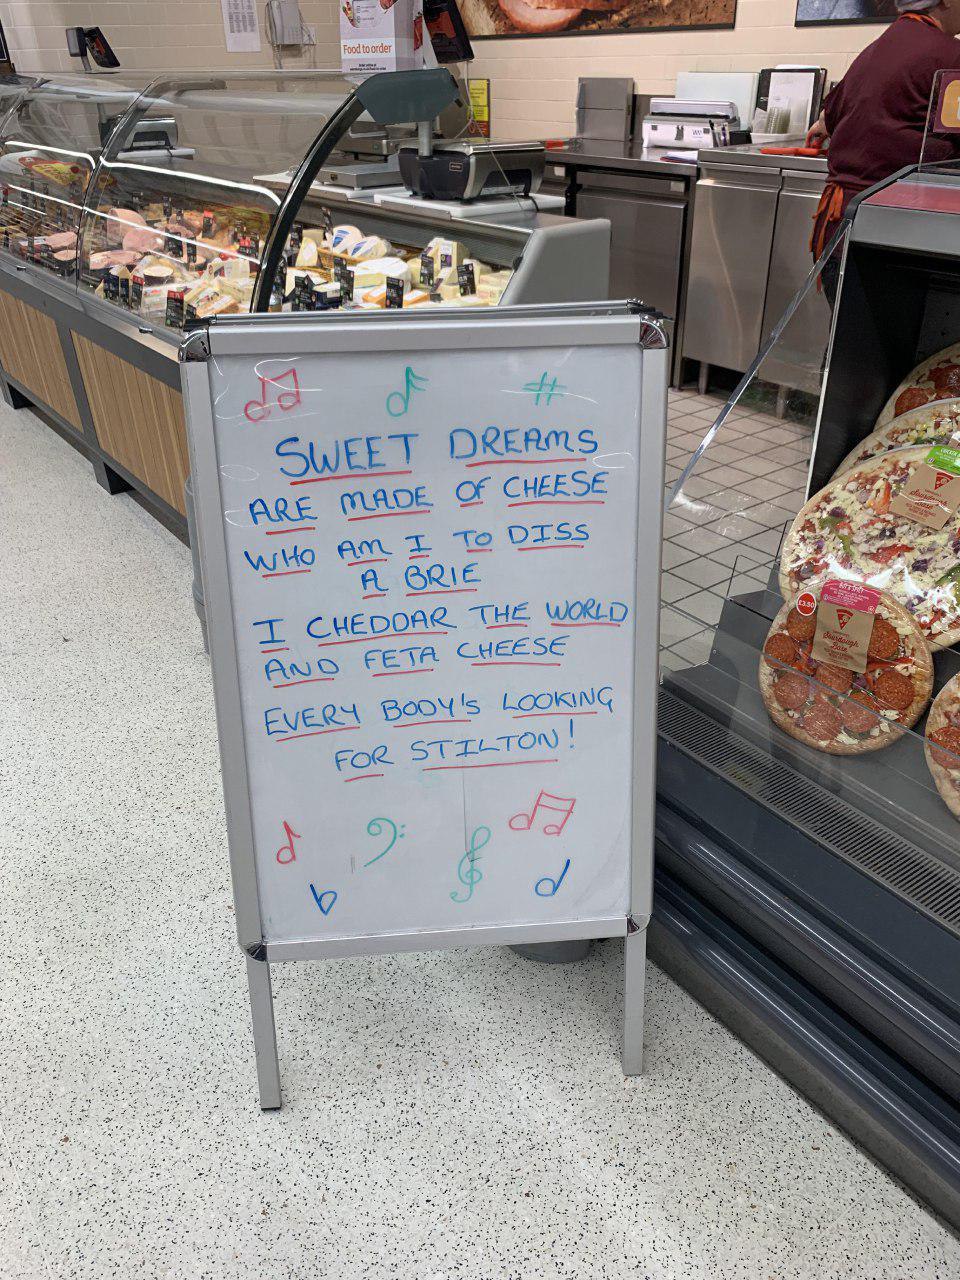 Food to order
SWEET DREAMS
ARE MADE OF CHEESE
WHO AM I TO DISS
A BRIE
I CHEDDAR THE WORLD
AND FETA CHEESE
EVERY BODY'S LOOKING
FOR STILTON!
£3.50
Sourdough
Base